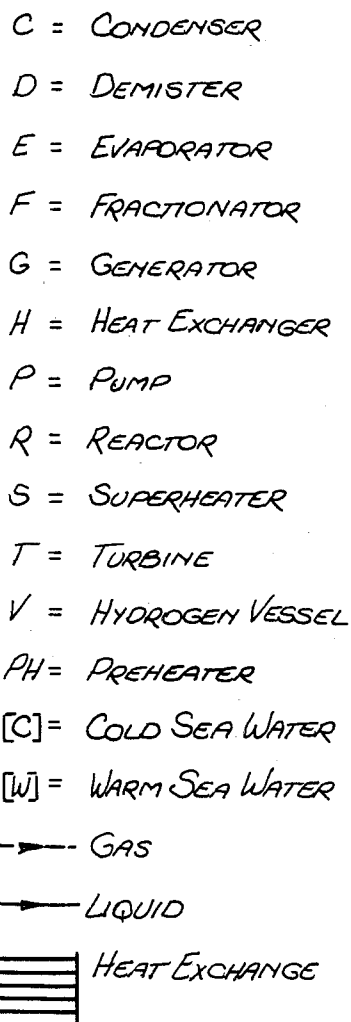 C = CONDENSER
D = DEMISTER
E = EVAPORATOR
F = FRACTIONATOR
G = GENERATOR
H = HEAT EXCHANGER
P = PUMP
R = REACTOR
S = SUPERHEATER
T = TURBINE
V = HYDROGEN VESSEL
PH = PREHEATER
[C] = COLD SEA WATER
[W] = WARM SEA WATER
GAS
LIQUID
HEAT EXCHANGE